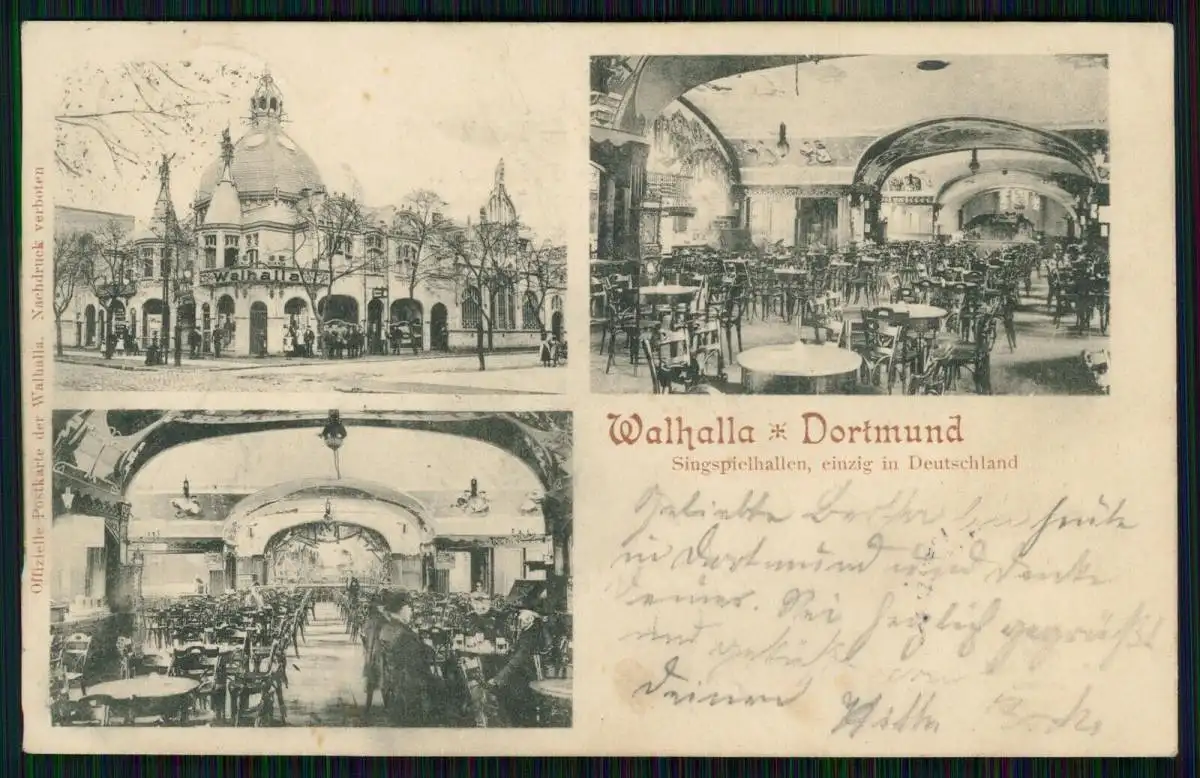 Offizielle Postkarte der Walhalla. Nachdruck verboten
Walhalla
Walhalla ✠ Dortmund
Singspielhallen, einzig in Deutschland
Geliebte Bertha bin heute
in Dortmund und denke
Deiner. Sei herzlich gegrüßt
und geküßt von
Deinem